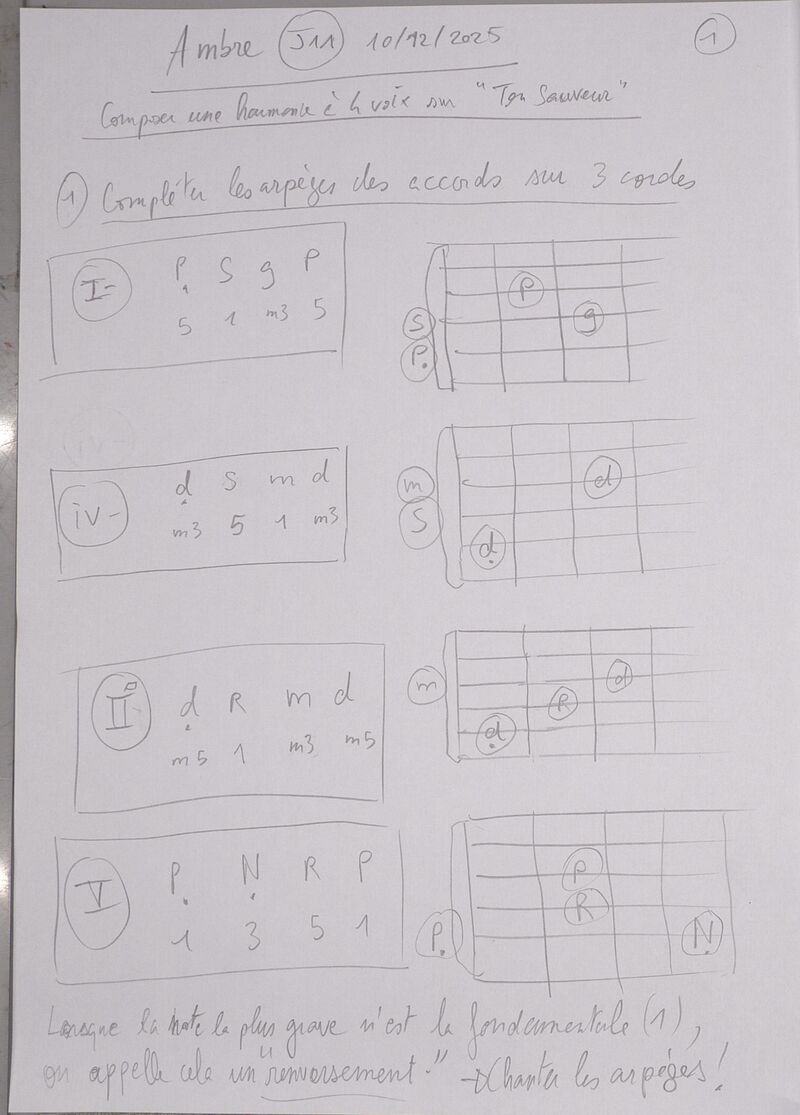 Ambre J11 10/12/2025
1
Composer une harmonie à la voix sur "Ton Sauveur"
1 Compléter les arpèges des accords sur 3 cordes
I- P. S g P
5 1 m3 5
P
S g
P.
iv-
iv- ḍ S m d
m3 5 1 m3
m d
S
ḍ
II ḍ R m d
m5 1 m3 m5
m d
R
ḍ
V P. N. R P
1 3 5 1
P
R
P. N.
Lorsque la note la plus grave n'est la fondamentale (1),
on appelle cela un "renversement." → Chanter les arpèges !